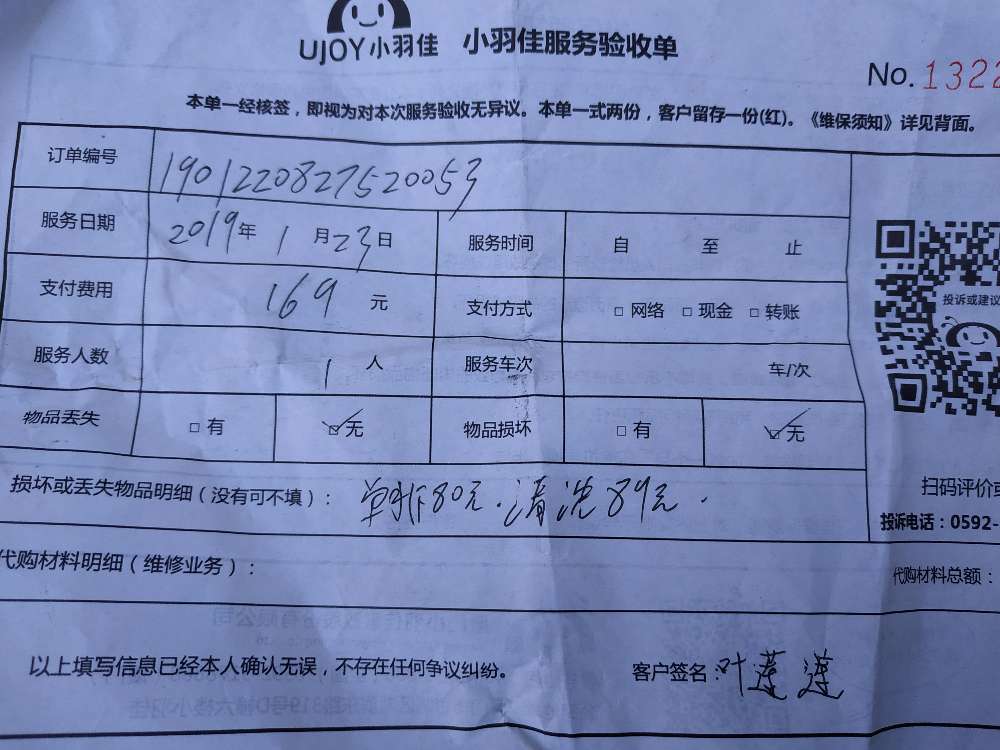 UJOY小羽佳 小羽佳服务验收单
No.1322
本单一经核签，即视为对本次服务验收无异议。本单一式两份，客户留存一份(红)。《维保须知》详见背面。
订单编号 1901220827520053
服务日期 2019年1月23日 服务时间 自 至 止
支付费用 169 元 支付方式 □网络 □现金 □转账
投诉或建议
服务人数 1 人 服务车次 车/次
物品丢失 □有 ☑无 物品损坏 □有 ☑无
损坏或丢失物品明细（没有可不填）： 单拆80元.清洗89元.
扫码评价或
投诉电话：0592-
代购材料明细（维修业务）：
代购材料总额：
以上填写信息已经本人确认无误，不存在任何争议纠纷。 客户签名：叶莲莲